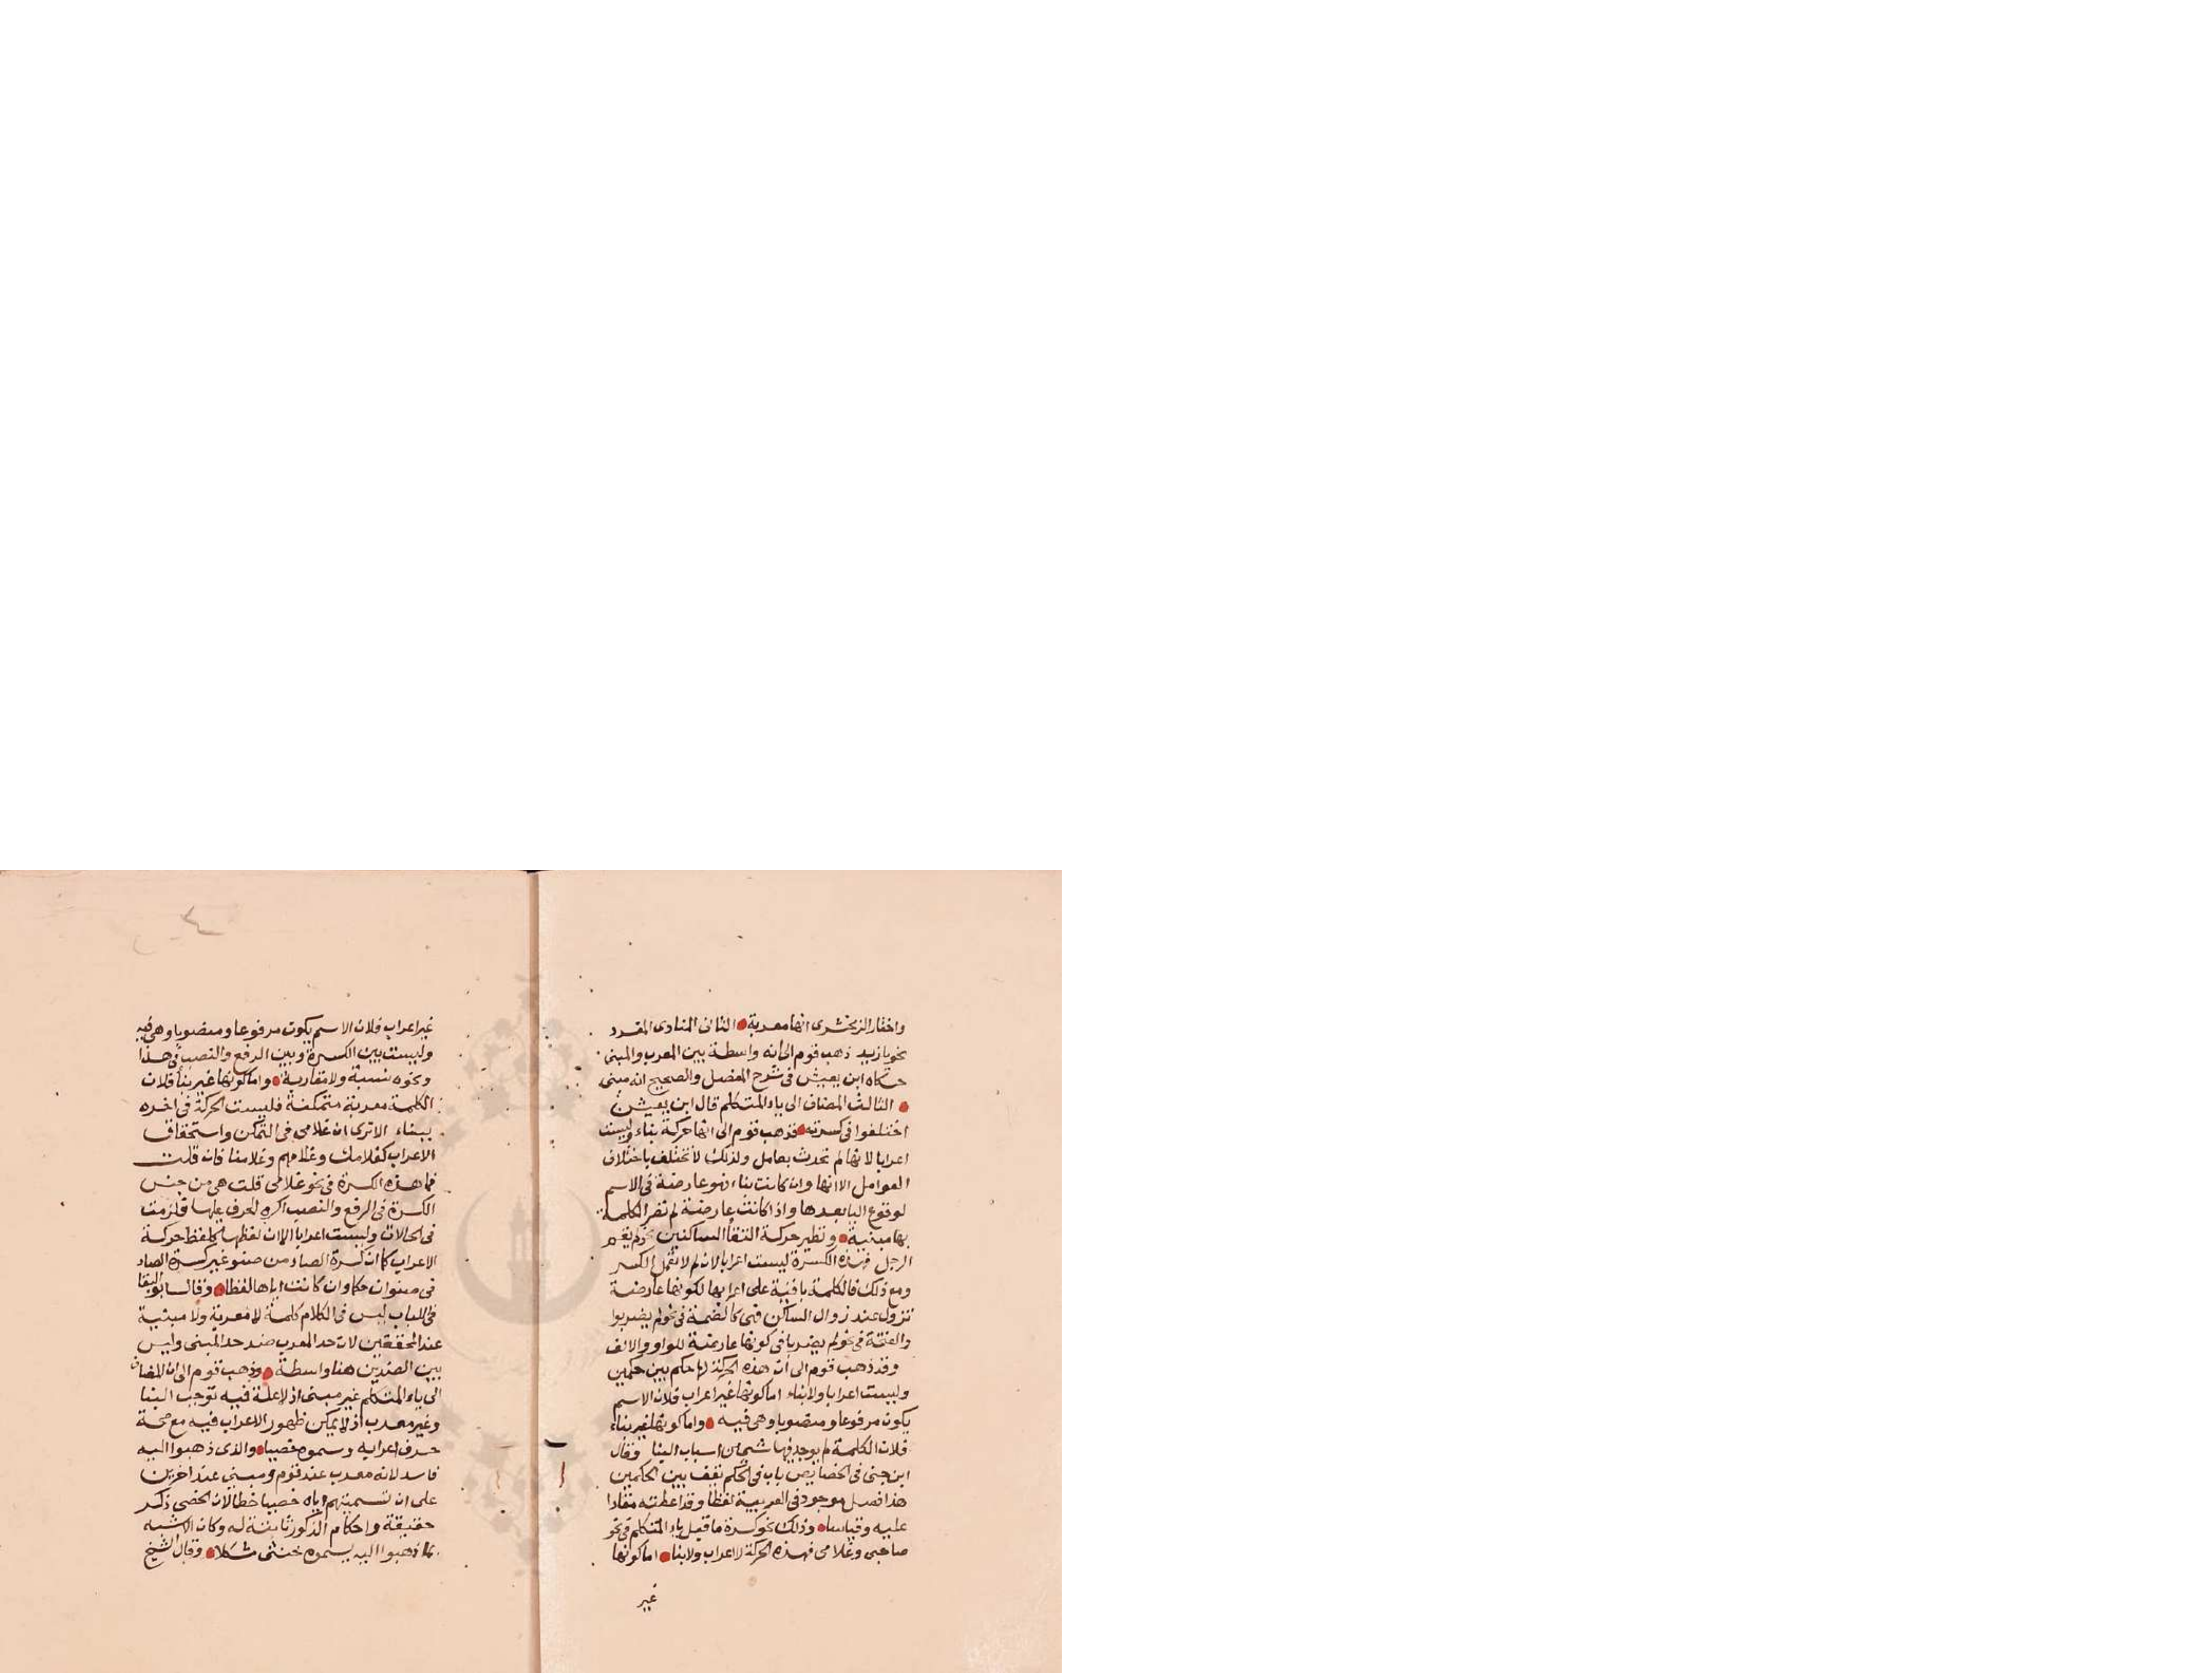 واختار الزمخشرى انها معربة الثانى المنادى المفرد
نحو يا زيد ذهب قوم الى انه واسطة بين المعرب والمبنى
حكاه ابن يعيش فى شرح المفصل والصحيح انه مبنى
الثالث المضاف الى ياء المتكلم قال ابن يعيش
اختلفوا فى كسرته فذهب قوم الى انها حركة بناء وليست
اعرابا لانها لم تحدث بعامل ولذلك لا تختلف باختلاف
العوامل الا انها وان كانت بناء فهو عارضة فى الاسم
لوقوع اليا بعدها واذا كانت عارضة لم تصر الكلمة
بها مبنية ونظير حركة التقا الساكنين نحو لم يقم
الرجل فهذه الكسرة ليست اعرابا لان لم لا تعمل الكسر
ومع ذلك فالكلمة باقية على اعرابها لكونها عارضة
تزول عند زوال الساكن فهى كالضمة فى نحو لم يضربوا
والفتحة فى نحو لم يضربا فى كونها عارضة للواو والالف
وقد ذهب قوم الى ان هذه الحركة لها حكم بين حكمين
وليست اعرابا ولا بناء اما كونها غير اعراب فلان الاسم
يكون مرفوعا ومنصوبا وهى فيه واما كونها غير بناء
فلان الكلمة لم يوجد فيها شى من اسباب البنا وقال
ابن جنى فى الخصايص باب فى الحكم يقف بين الحكمين
هذا فصل موجود فى العربية لفظا وقد اعطته مقادا
عليه وقياسا وذلك نحو كسرة ما قبل ياء المتكلم فى نحو
صاحبى وغلامى فهذه الحركة لا اعراب ولا بنا اما كونها
غير
غير اعراب فلان الاسم يكون مرفوعا ومنصوبا وهى فيه
وليست بين الكسرة وبين الرفع والنصب فى هذا
ونحوه نسبة ولا مقاربة واما كونها غير بنا فلان
الكلمة معربة متمكنة فليست الحركة فى اخره
ببناء الا ترى ان غلامى فى التمكن واستحقاق
الاعراب كغلامك وغلامهم وغلامنا فان قلت
فما هذه الكسرة فى نحو غلامى قلت هى من جنس
الكسرة فى الرفع والنصب اكره الحرف عليها فلزمت
فى الحالات وليست اعرابا الا ان لفظها كلفظ حركة
الاعراب كما ان كسرة الصاد من صنو غير كسرة الصاد
فى صنوان حكما وان كانت اياها لفظا وقال ابو البقا
فى اللباب ليس فى الكلام كلمة لا معربة ولا مبنية
عند المحققين لان حد المعرب ضد حد المبنى وليس
بين الضدين هنا واسطة وذهب قوم الى ان المضاف
الى ياء المتكلم غير مبنى اذ لا علة فيه توجب البنا
وغير معرب اذ لا يمكن ظهور الاعراب فيه مع صحة
حرف اعرابه وسموه خصيا والذى ذهبوا اليه
فاسد لانه معرب عند قوم ومبنى عند اخرين
على ان تسميتهم اياه خصيا خطا لان الخصى ذكر
حقيقة واحكام الذكور ثابتة له وكان الاشبه
بما ذهبوا اليه يسموه خنثى مشكلا وقال الشيخ